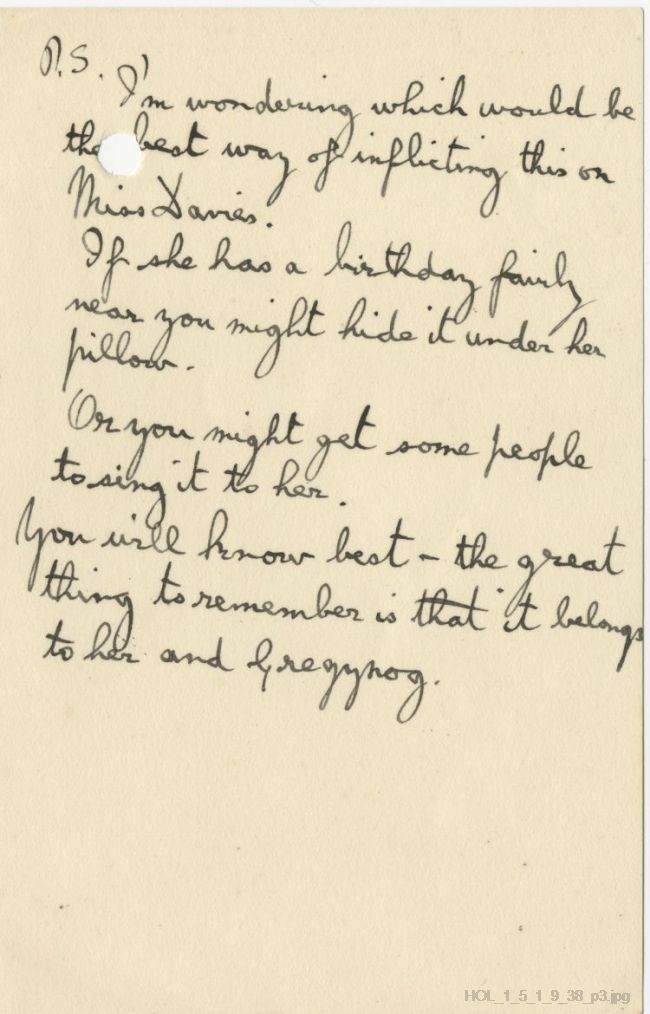 P.S.
I'm wondering which would be
the best way of inflicting this on
Miss Davies.
If she has a birthday fairly
near you might hide it under her
pillow.
Or you might get some people
to sing it to her.
You will know best - the great
thing to remember is that it belongs
to her and Gregynog.
HOL_1_5_1_9_38_p3.jpg